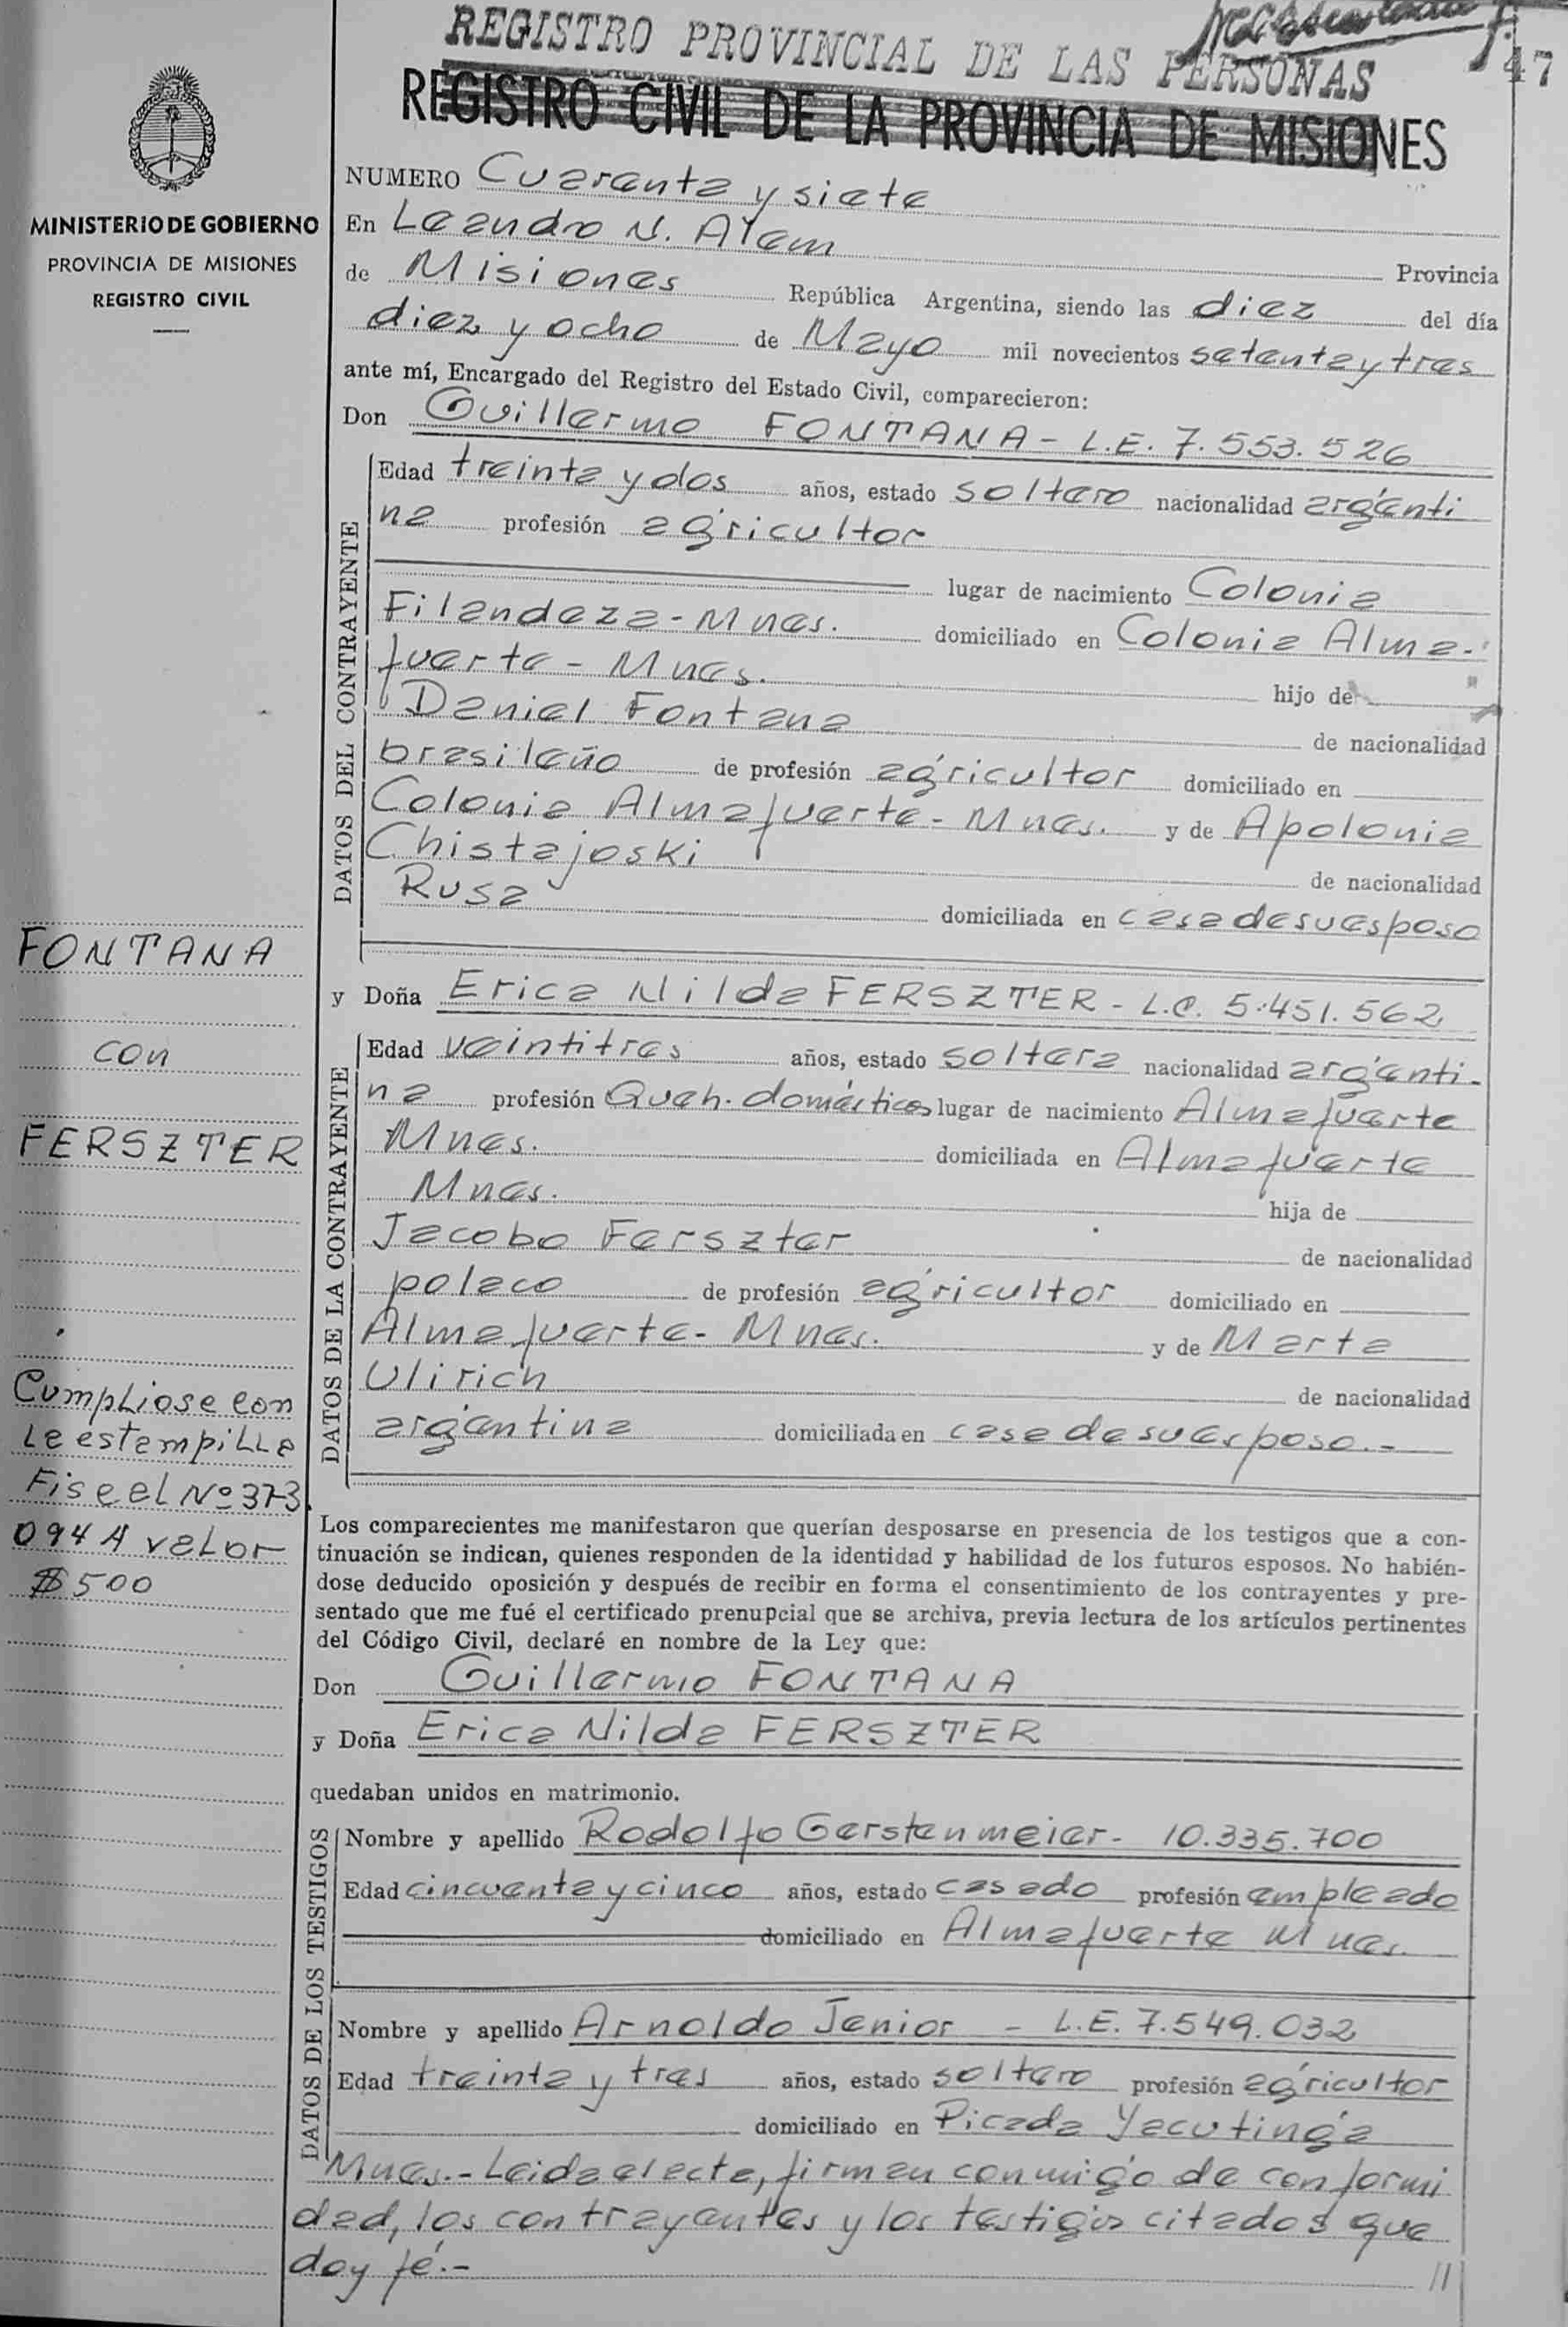 REGISTRO PROVINCIAL DE LAS PERSONAS
47
REGISTRO CIVIL DE LA PROVINCIA DE MISIONES
MINISTERIO DE GOBIERNO
PROVINCIA DE MISIONES
REGISTRO CIVIL
NUMERO Cuarenta y siete
En Leandro N. Alem Provincia
de Misiones República Argentina, siendo las diez del día
diez y ocho de Mayo mil novecientos setenta y tres
ante mí, Encargado del Registro del Estado Civil, comparecieron:
Don Guillermo FONTANA - L.E. 7.553.526
DATOS DEL CONTRAYENTE
Edad treinta y dos años, estado soltero nacionalidad argenti
na profesión agricultor
lugar de nacimiento Colonia
Filandeza - Mnes. domiciliado en Colonia Alma-
fuerte - Mnes. hijo de
Daniel Fontana de nacionalidad
brasileño de profesión agricultor domiciliado en
Colonia Almafuerte - Mnes. y de Apolonia
Chistajoski de nacionalidad
Rusa domiciliada en casa de su esposo
FONTANA
con
FERSZTER
y Doña Erica Nilda FERSZTER - L.C. 5.451.562
DATOS DE LA CONTRAYENTE
Edad veintitres años, estado soltera nacionalidad argenti-
na profesión Queh. domésticos lugar de nacimiento Almafuerte
Mnes. domiciliada en Almafuerte
Mnes. hija de
Jacobo Ferszter de nacionalidad
polaco de profesión agricultor domiciliado en
Almafuerte - Mnes. y de Marta
Ulirich de nacionalidad
argentina domiciliada en casa de su esposo.-
Cumpliose con
la estampilla
Fiscal Nº 373.
094 A valor
$500
Los comparecientes me manifestaron que querían desposarse en presencia de los testigos que a con-
tinuación se indican, quienes responden de la identidad y habilidad de los futuros esposos. No habién-
dose deducido oposición y después de recibir en forma el consentimiento de los contrayentes y pre-
sentado que me fué el certificado prenupcial que se archiva, previa lectura de los artículos pertinentes
del Código Civil, declaré en nombre de la Ley que:
Don Guillermo FONTANA
y Doña Erica Nilda FERSZTER
quedaban unidos en matrimonio.
DATOS DE LOS TESTIGOS
Nombre y apellido Rodolfo Gerstenmeier - 10.335.700
Edad cincuenta y cinco años, estado casado profesión empleado
domiciliado en Almafuerte Mnes.
Nombre y apellido Arnoldo Janior - L.E. 7.549.032
Edad treinta y tres años, estado soltero profesión agricultor
domiciliado en Picada Yacutinga
Mnes.- Leida el acta, firman conmigo de conformi
dad, los contrayentes y los testigos citados que
doy fé.- //